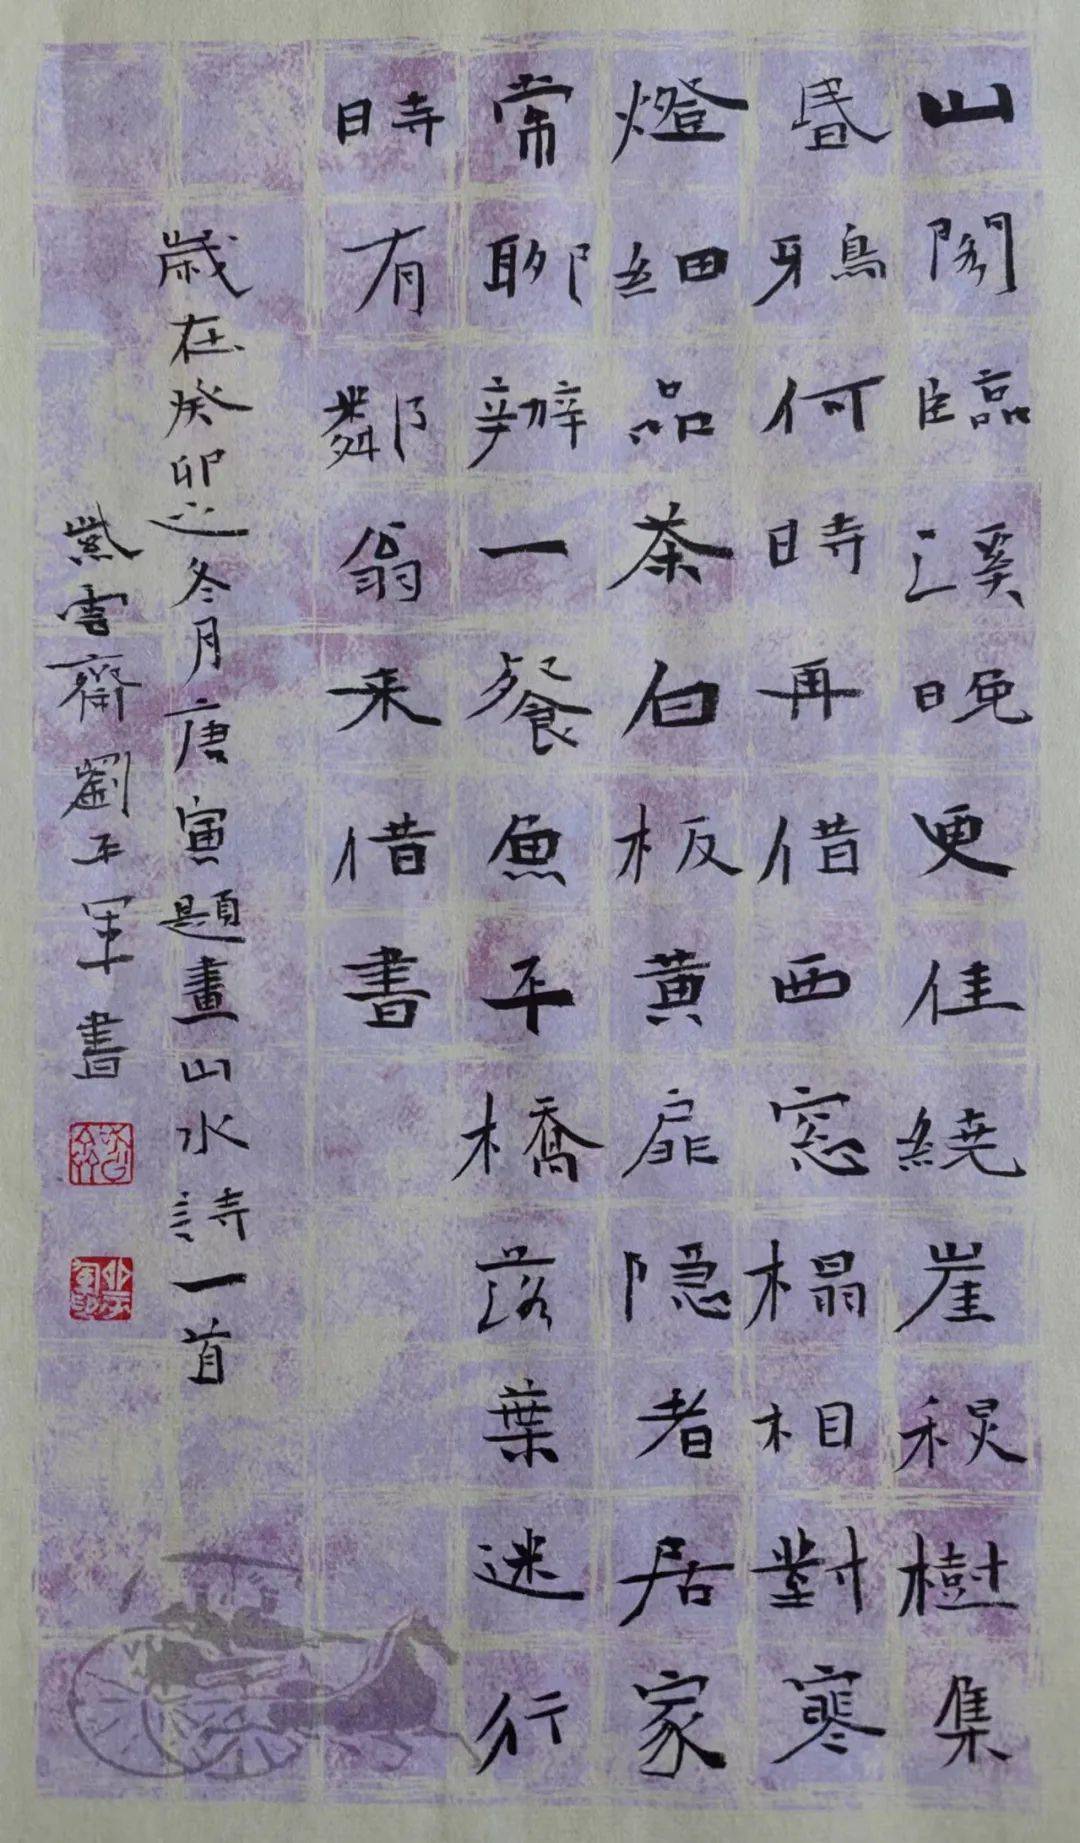 山閣臨溪晚更佳繞崖秋樹集
昏鴉何時再借西窓榻相對寒
燈細品茶白板黃扉隐者居家
常聊辦一餐魚平橋落葉迷行
時有鄰翁来借書
歲在癸卯之冬月唐寅題畫山水詩一首
紫雲齋劉平軍書